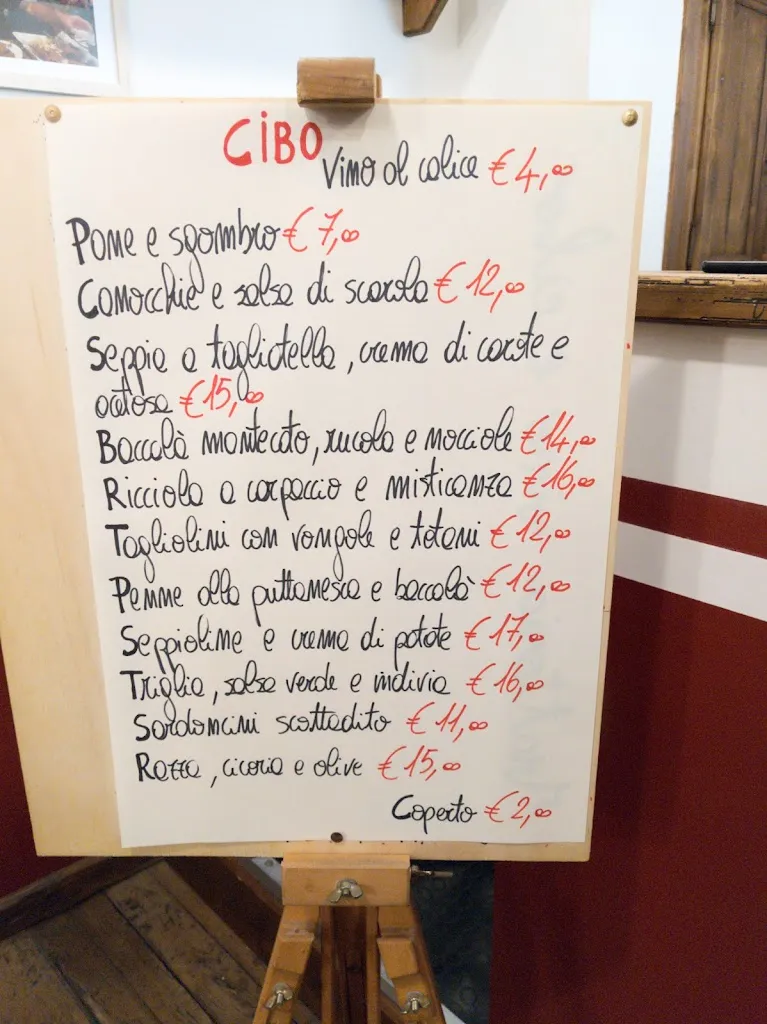 CIBO
Vino al calice € 4,00
Pane e sgombro € 7,00
Canocchie e salsa di scarola € 12,00
Seppia a tagliatella, crema di carote e
acetosa € 15,00
Baccalà mantecato, rucola e nocciole € 14,00
Ricciola a carpaccio e misticanza € 16,00
Tagliolini con vongole e totani € 12,00
Penne alla puttanesca e baccalà € 12,00
Seppioline e crema di patate € 17,00
Triglia, salsa verde e indivia € 16,00
Sardoncini scottadito € 11,00
Razza, cicoria e olive € 15,00
Coperto € 2,00